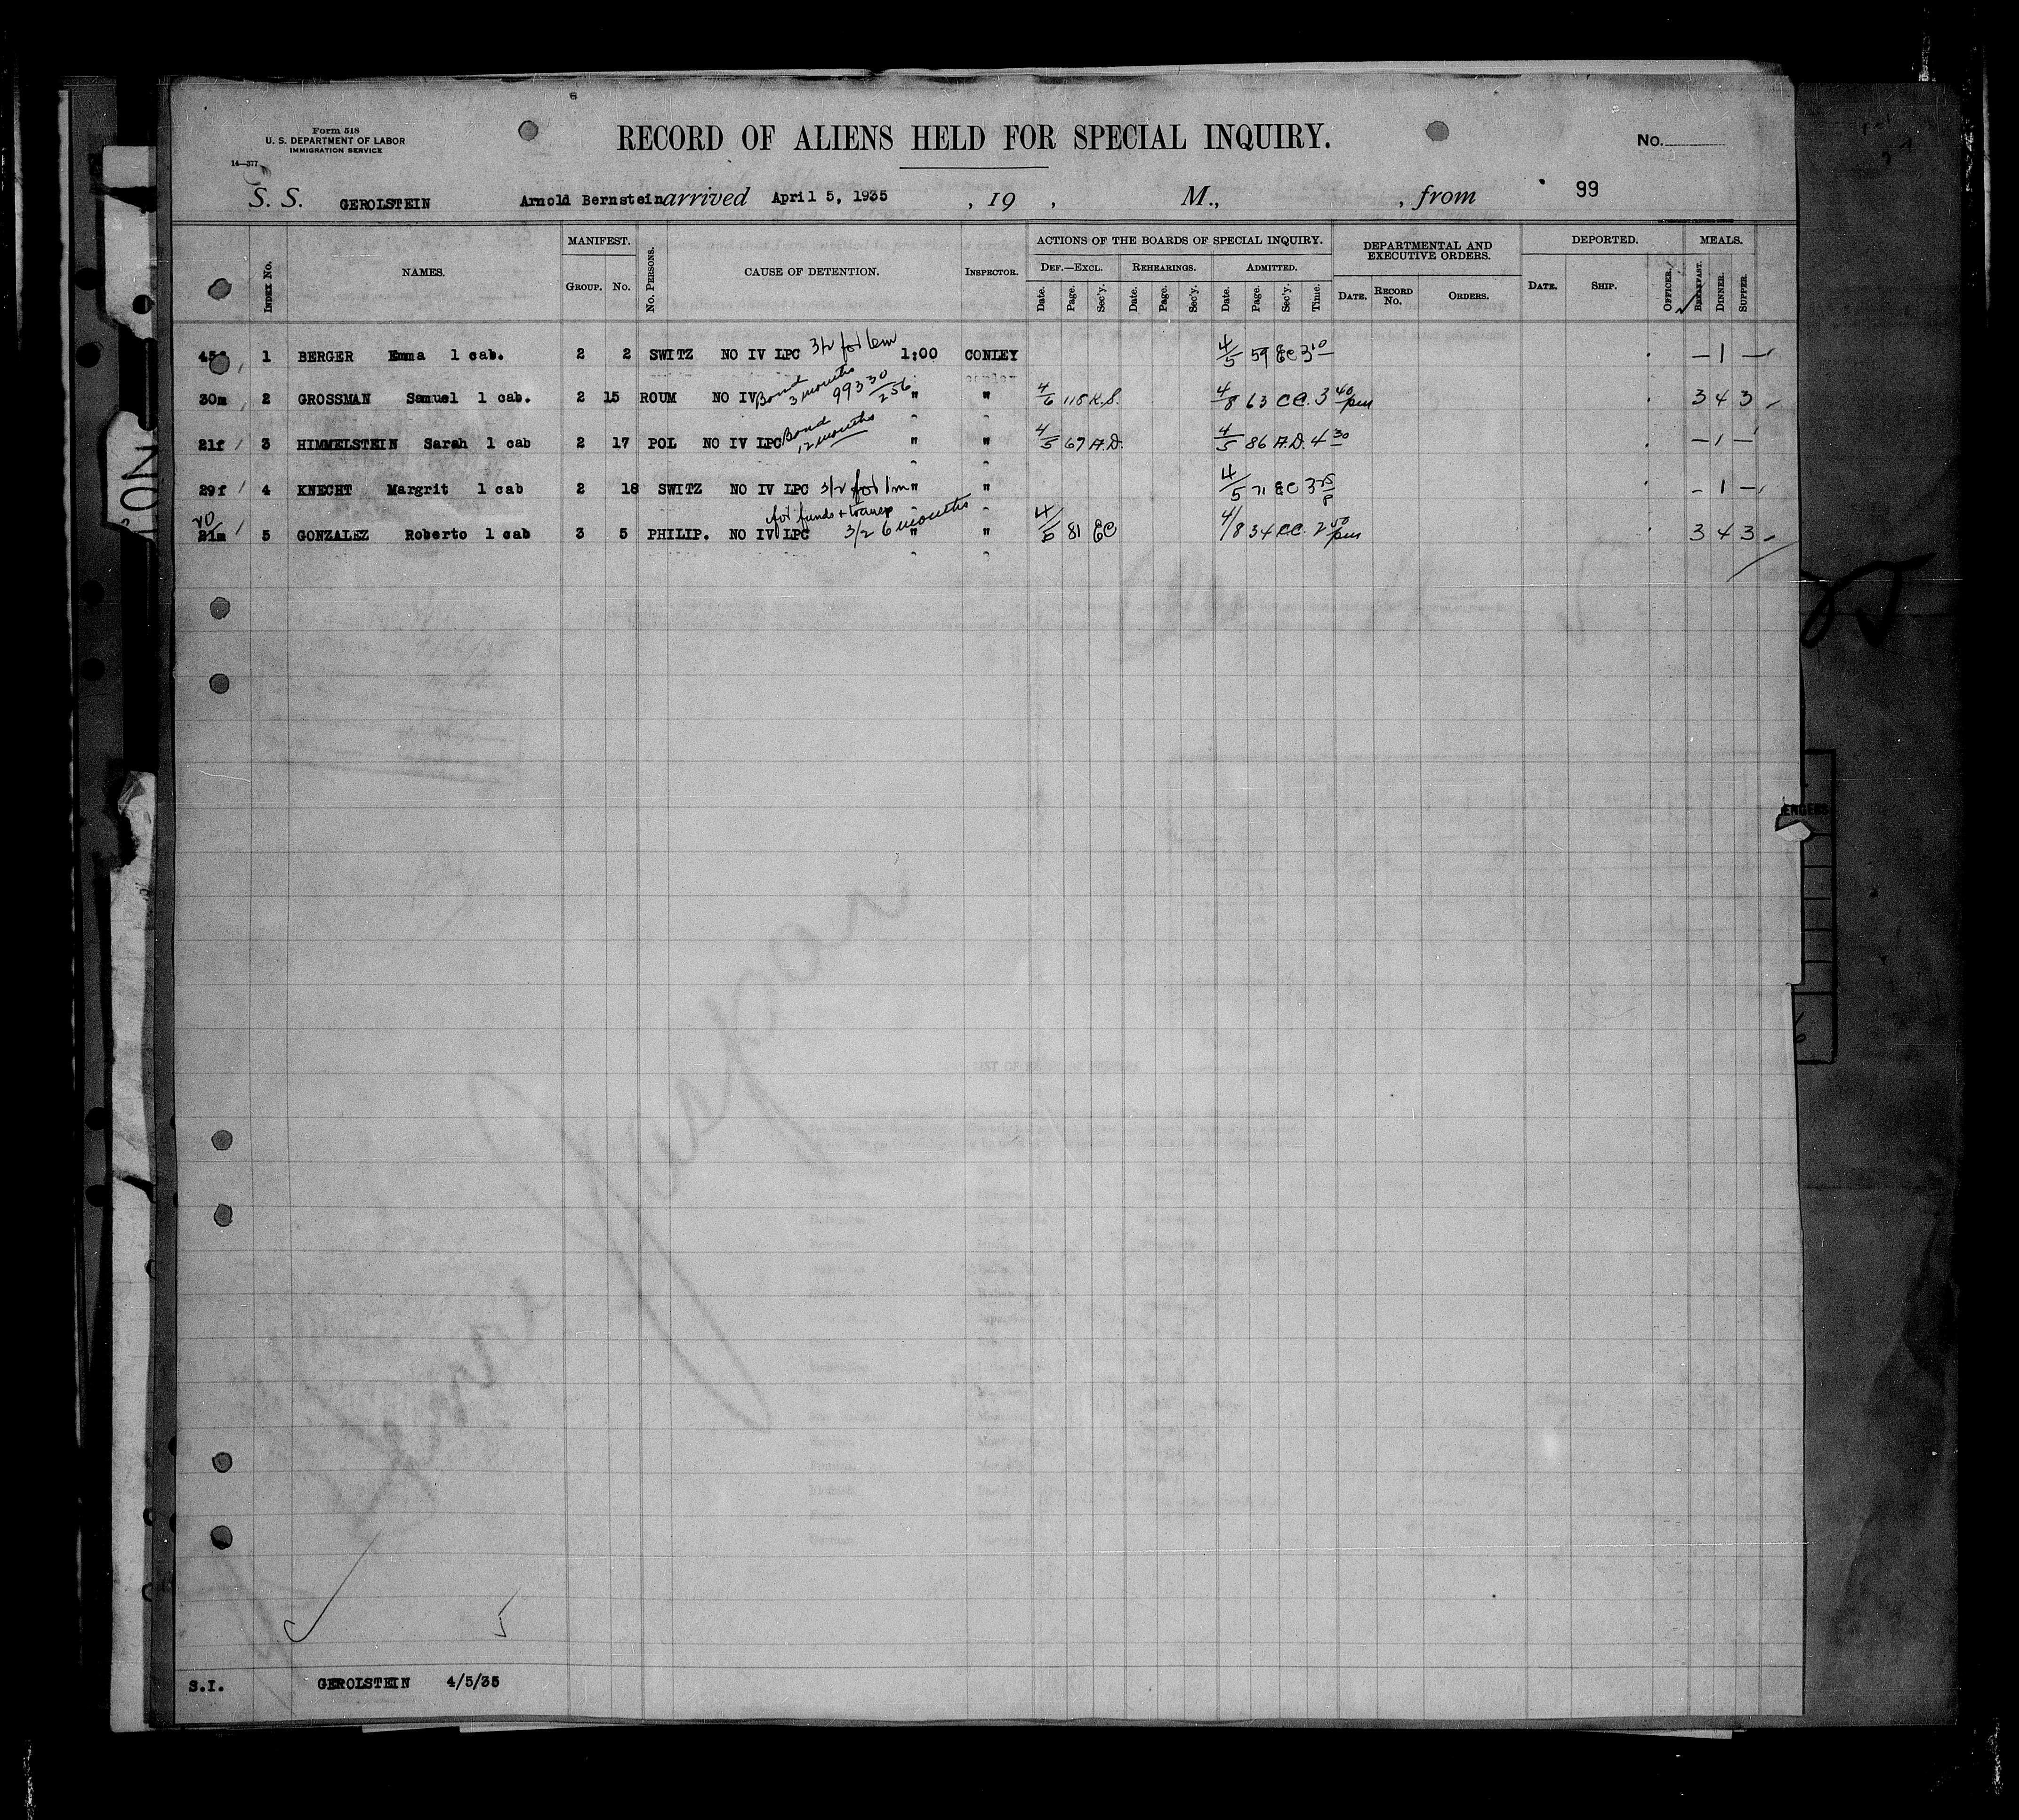 Form 518
U. S. DEPARTMENT OF LABOR
IMMIGRATION SERVICE
14—377
RECORD OF ALIENS HELD FOR SPECIAL INQUIRY.
No.
S. S. GEROLSTEIN Arnold Bernstein arrived April 5, 1935 , 19 , M., , from 99
INDEX No. NAMES. MANIFEST. GROUP. No. No. PERSONS. CAUSE OF DETENTION. INSPECTOR. ACTIONS OF THE BOARDS OF SPECIAL INQUIRY. DEF.—EXCL. Date. Page. Sec'y. REHEARINGS. Date. Page. Sec'y. ADMITTED. Date. Page. Sec'y. Time. DEPARTMENTAL AND EXECUTIVE ORDERS. DATE. RECORD No. ORDERS. DEPORTED. DATE. SHIP. OFFICER. MEALS. BREAKFAST. DINNER. SUPPER.
1 BERGER Emma 1 cab. 2 2 SWITZ NO IV LPC 3/2 for 1:00 CONLEY 4/5 59 EC 3 10 — 1 —
30m 2 GROSSMAN Samuel 1 cab. 2 15 ROUM NO IV Bond 3 months 993 30/256 " " 4/6 118 K.S. 4/8 63 CC. 3 40 pm 3 4 3
21f 3 HIMMELSTEIN Sarah 1 cab 2 17 POL NO IV LPC Bond 12 months " " 4/5 67 A.D. 4/5 86 A.D. 4 30 — 1 —
29f 4 KNECHT Margrit 1 cab 2 18 SWITZ NO IV LPC 3/2 for 1m " " 4/5 71 EC 3 25 — 1 —
20
21m 5 GONZALEZ Roberto 1 cab 3 5 PHILIP. NO IV LPC for funds + transp 3/2 6 months " " 4/5 81 EC 4/8 34 CC. 2 40 pm 3 4 3
NOI
ENGERS
5
S.I. GEROLSTEIN 4/5/35